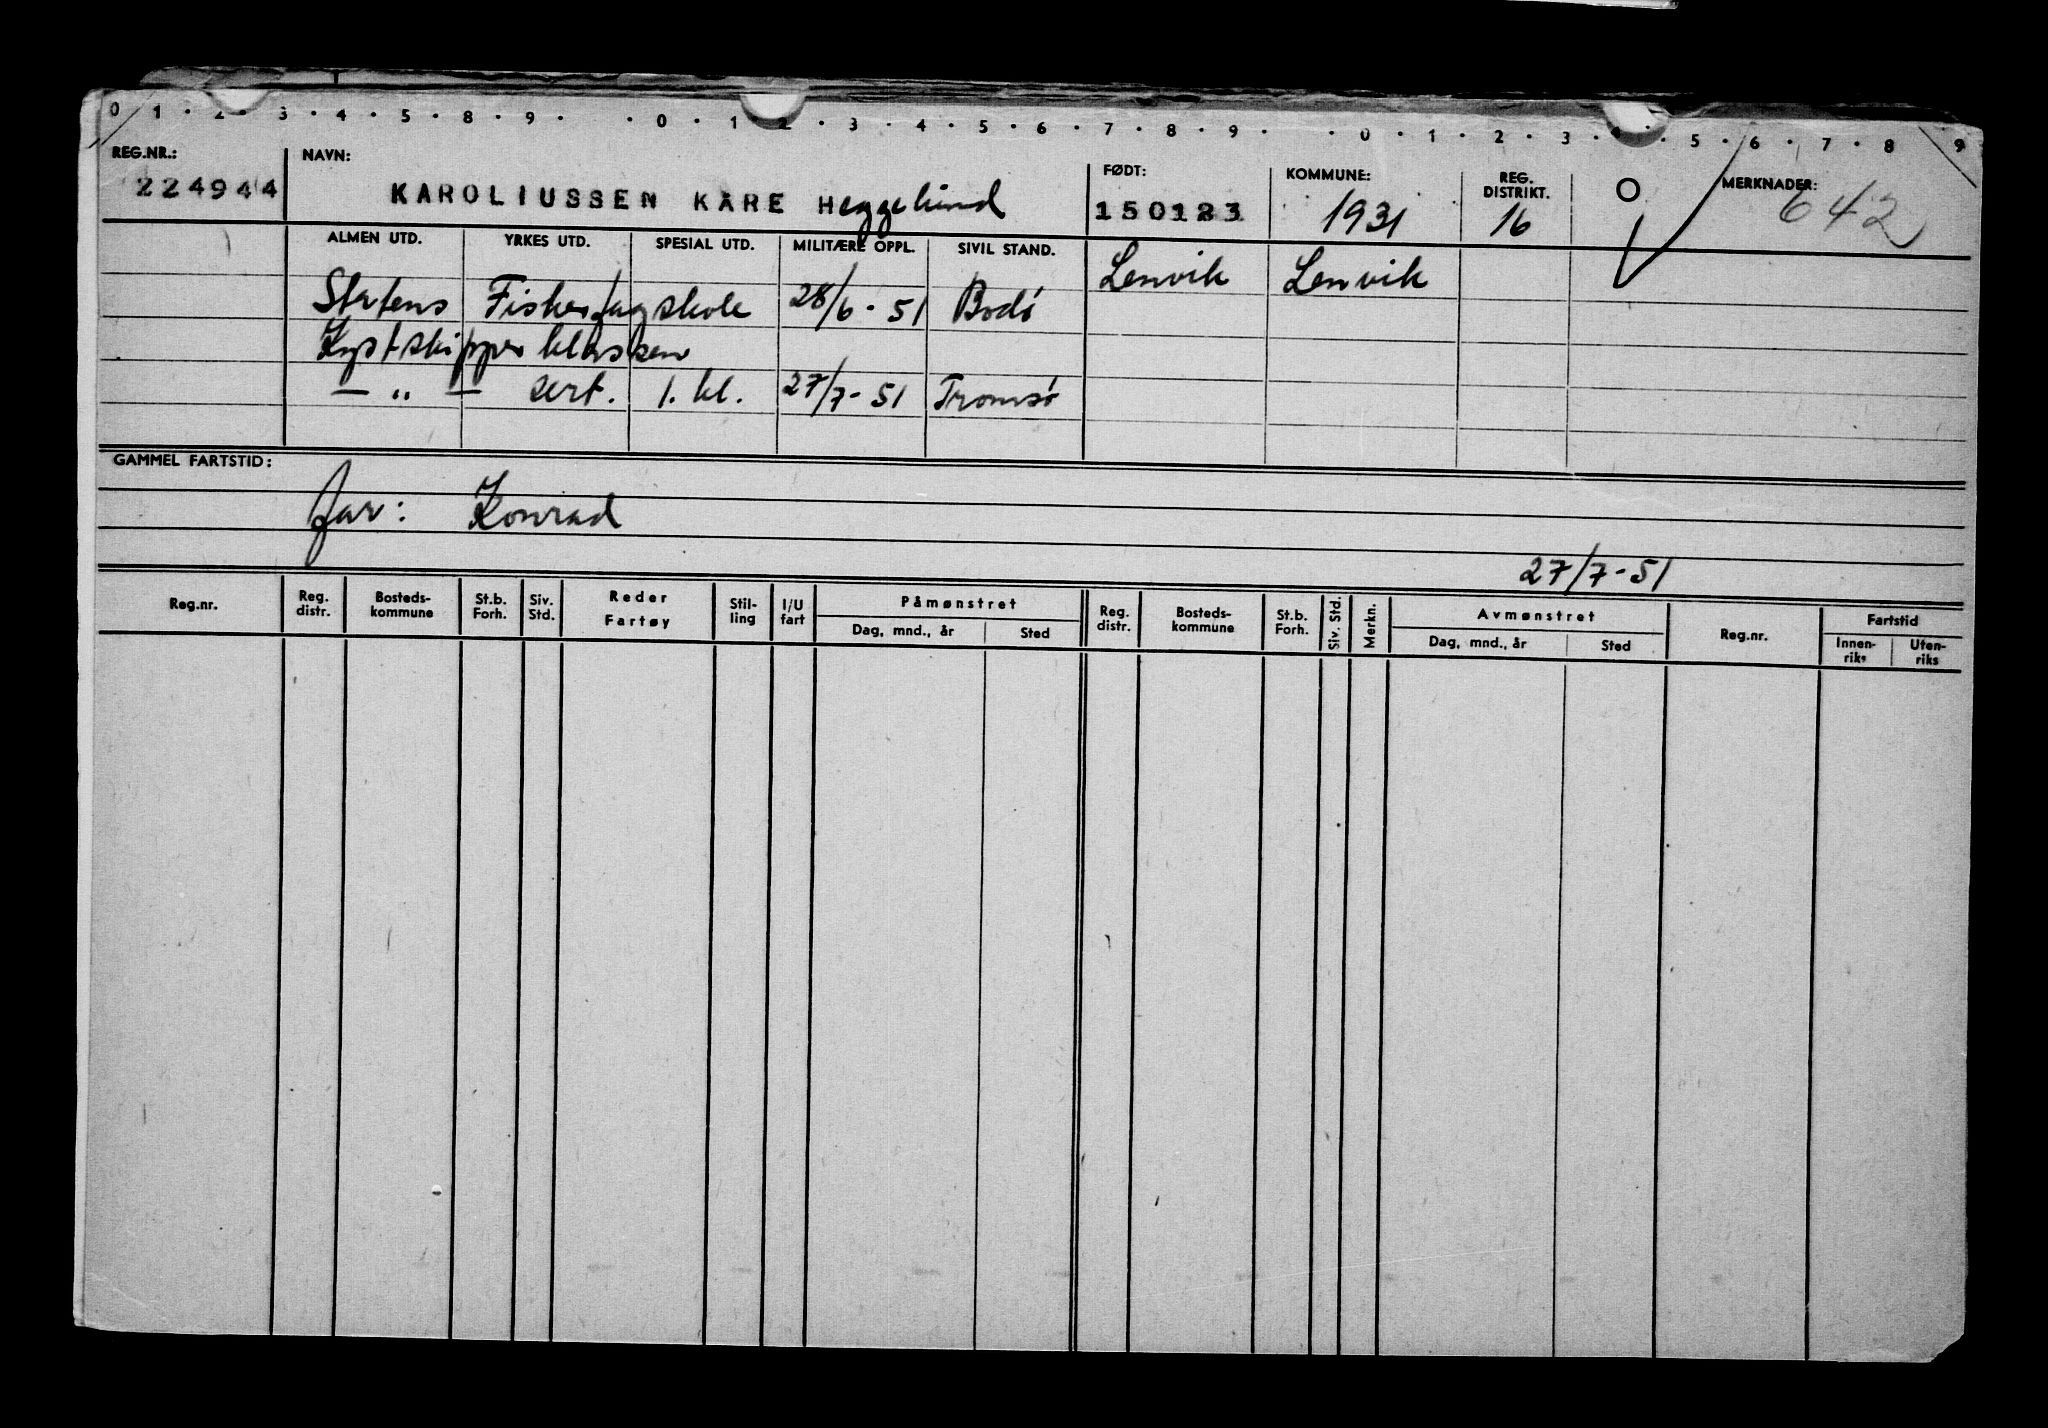 0 1 · 2 · 3 · 4 · 5 · 8 · 9 · · 0 · 1 2 · 3 · 4 · 5 · 6 · 7 · 8 · 9 · · 0 · 1 · 2 · 3 · 4 · 5 · 6 · 7 · 8 9
REG.NR.: NAVN: FØDT: KOMMUNE: REG. DISTRIKT. O MERKNADER:
224944 KAROLIUSSEN KÅRE Heggelund 150123 1931 16 642
ALMEN UTD. YRKES UTD. SPESIAL UTD. MILITÆRE OPPL. SIVIL STAND. Lenvik Lenvik
Statens Fiskerfagskole 28/6-51 Bodø
Kystskipperklassen
— „ — sert. 1. kl. 27/7-51 Tromsø
GAMMEL FARTSTID:
far: Konrad
27/7-51
Reg.nr. Reg. distr. Bosteds-kommune St.b. Forh. Siv. Std. Reder Fartøy Stil-ling I/U fart Påmønstret Dag, mnd., år Sted Reg. distr. Bosteds-kommune St.b. Forh. Siv. Std. Merkn. Avmønstret Dag, mnd., år Sted Reg.nr. Fartstid Innen-riks Uten-riks